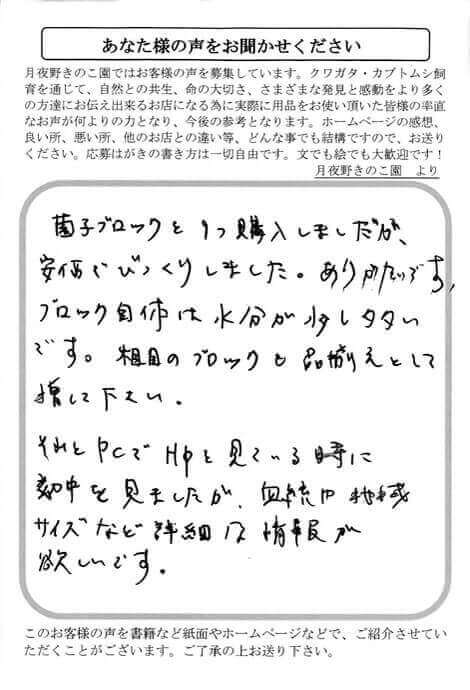 あなた様の声をお聞かせください
月夜野きのこ園ではお客様の声を募集しています。クワガタ・カブトムシ飼
育を通じて、自然との共生、命の大切さ、さまざまな発見と感動をより多く
の方達にお伝え出来るお店になる為に実際に用品をお使い頂いた皆様の率直
なお声が何よりの力となり、今後の参考となります。ホームページの感想、
良い所、悪い所、他のお店との違い等、どんな事でも結構ですので、お送り
ください。応募はがきの書き方は一切自由です。文でも絵でも大歓迎です!
月夜野きのこ園 より
菌子ブロックを1つ購入しましだが、
安価でびっくりしました。ありがたいです。
ブロック自体は水分が少し多い
です。粗目のブロックも品揃えとして
増して下さい。
それとPCでHPを見ている時に
幼虫を見ましたが、血統や地域
サイズなど詳細な情報が
欲しいです。
このお客様の声を書籍など紙面やホームページなどで、ご紹介させてい
ただくことがございます。ご了承の上お送り下さい。